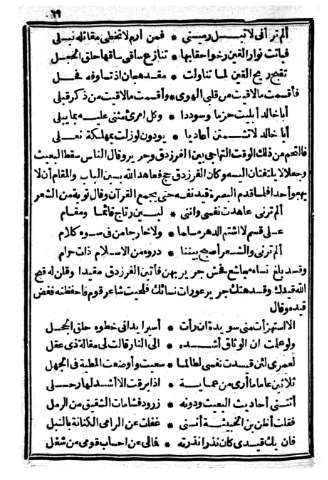 ٣٩
ألم ترانى لا تبيل رميتى • فمن أرم لا تخطى مقاتله نبلى
فباتت نوار القين رخوا حقابها • تنازع ساقى ساقها حلق الحجل
تقبح ريح القين لما تناولت • مقد هجان اذ تساوفه فحل
فأقسمت مالاقيت من قلبى الهوى • وأقسمت مالاقيت من ذكر قبلى
أبا خالد أبليت حزما وسوددا • وكل امرئ مثنى عليه بما يبلى
أبا خالد لا تشمتن أعاديا • يودون لو زلت بمهلكة نعلى
فالتحم من ذلك الوقت التهاجى بين الفرزدق وجرير وقال الناس سقط البعيث
وجعلا لا يلتفتان اليه وكان الفرزدق حج فعاهد الله بين الباب والمقام أن لا
يهجو أحدا فلما قدم البصرة قيد نفسه حتى يجمع القرآن وقال توبة من الشعر
ألم ترنى عاهدت نفسى واننى • لبين رتاج قائما ومقام
على قسم لا اشتم الدهر مسلما • ولا خارجا من فى سوء كلام
ألم ترنى والشعر أصبح بيننا • دروء من الاسلام ذات حرام
وقد بلغ نساء مجاشع فحش جرير بهن فأتين الفرزدق مقيدا وقلن له قبح
الله قيدك وقد هتك جرير عورات نسائك فلحيت شاعر قوم فأحفظنه ففض
قيده وقال
الا استهزأت منى سويدة ان رأت • أسيرا يدانى خطوه حلق الحجل
ولو علمت ان الوثاق أشده • الى النار قالت لى مقالة ذى عقل
لعمرى لئن قيدت نفسى لطالما • سعيت وأوضعت المطية فى الجهل
ثلاثين عاما ما أرى من عماية • اذا برقت الا أشد لها رحلى
أتتنى أحاديث البعيث ودونه • زرود فشامات الشقيق من الرمل
فقلت أظن ابن الخبيثة أننى • غفلت عن الرامى الكنانة بالنبل
فان يك قيدى كان نذرا نذرته • فمالى عن احساب قومى من شغل